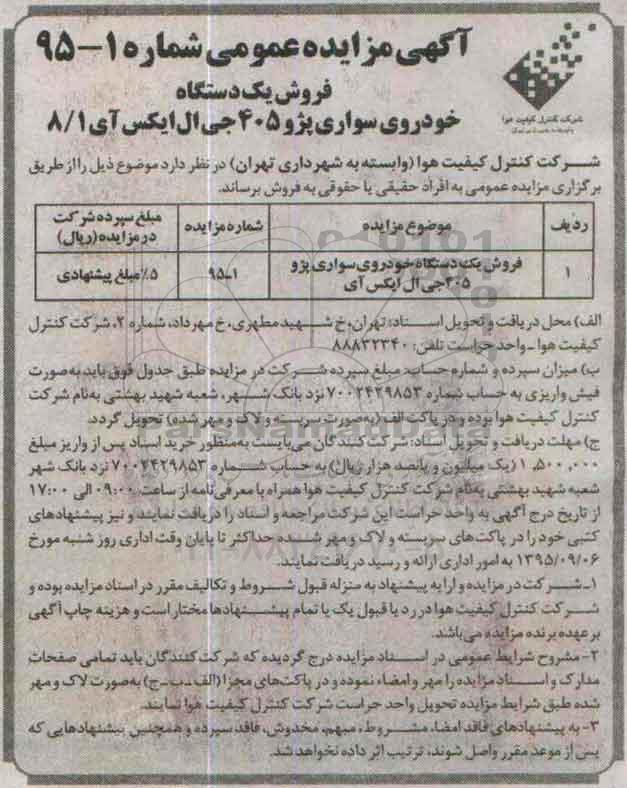 آگهی مزایده عمومی شماره ۱-۹۵
فروش یک دستگاه
خودروی سواری پژو ۴۰۵ جی ال ایکس آی ۸/۱
شرکت کنترل کیفیت هوا
شرکت کنترل کیفیت هوا (وابسته به شهرداری تهران) در نظر دارد موضوع ذیل را از طریق
برگزاری مزایده عمومی به افراد حقیقی یا حقوقی به فروش برساند.
ردیف موضوع مزایده شماره مزایده مبلغ سپرده شرکت
در مزایده (ریال)
۱ فروش یک دستگاه خودروی سواری پژو
۴۰۵ جی ال ایکس آی ۱-۹۵ ۵٪ مبلغ پیشنهادی
الف) محل دریافت و تحویل اسناد: تهران، خ شهید مطهری، خ مهرداد، شماره ۲، شرکت کنترل
کیفیت هوا - واحد حراست تلفن: ۸۸۸۳۲۳۴۰
ب) میزان سپرده و شماره حساب: مبلغ سپرده شرکت در مزایده طبق جدول فوق باید به صورت
فیش واریزی به حساب شماره ۷۰۰۲۴۲۹۸۵۳ نزد بانک شهر، شعبه شهید بهشتی به نام شرکت
کنترل کیفیت هوا بوده و در پاکت الف (به صورت سربسته و لاک و مهر شده) تحویل گردد.
ج) مهلت دریافت و تحویل اسناد: شرکت کنندگان می‌بایست به منظور خرید اسناد پس از واریز مبلغ
۱,۵۰۰,۰۰۰ (یک میلیون و پانصد هزار ریال) به حساب شماره ۷۰۰۲۴۲۹۸۵۳ نزد بانک شهر
شعبه شهید بهشتی به نام شرکت کنترل کیفیت هوا همراه با معرفی نامه از ساعت ۰۹:۰۰ الی ۱۷:۰۰
از تاریخ درج آگهی به واحد حراست این شرکت مراجعه و اسناد را دریافت نمایند و نیز پیشنهادهای
کتبی خود را در پاکت‌های سربسته و لاک و مهر شده حداکثر تا پایان وقت اداری روز شنبه مورخ
۱۳۹۵/۰۹/۰۶ به امور اداری ارائه و رسید دریافت نمایند.
۱- شرکت در مزایده و ارایه پیشنهاد به منزله قبول شروط و تکالیف مقرر در اسناد مزایده بوده و
شرکت کنترل کیفیت هوا در رد یا قبول یک یا تمام پیشنهادها مختار است و هزینه چاپ آگهی
بر عهده برنده مزایده می‌باشد.
۲- مشروح شرایط عمومی در اسناد مزایده درج گردیده که شرکت کنندگان باید تمامی صفحات
مدارک و اسناد مزایده را مهر و امضاء نموده و در پاکت‌های مجزا (الف-ب-ج) به صورت لاک و مهر
شده طبق شرایط مزایده تحویل واحد حراست شرکت کنترل کیفیت هوا نمایند.
۳- به پیشنهادهای فاقد امضا، مشروط، مبهم، مخدوش، فاقد سپرده و همچنین پیشنهادهایی که
پس از موعد مقرر واصل شوند، ترتیب اثر داده نخواهد شد.